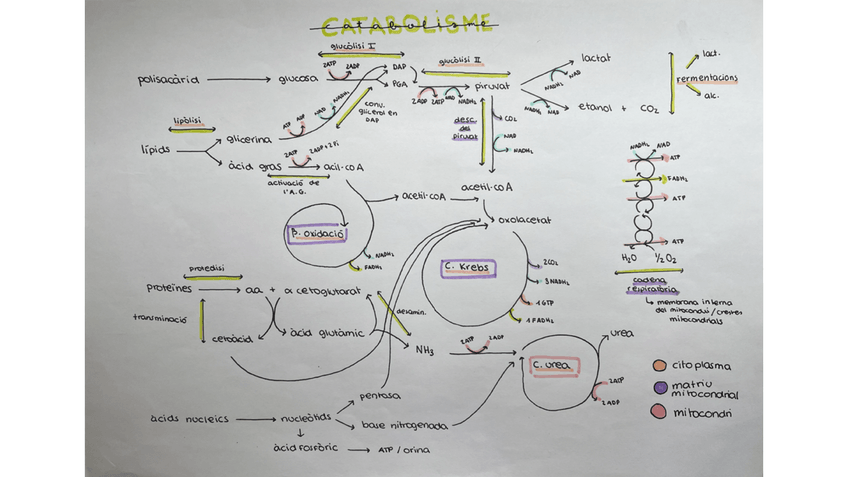 CATABOLISME
catabolisme
glucòlisi I
2ATP 2ADP
polisacàrid
glucosa
DAP
PGA
glucòlisi II
2ADP 2ATP NAD NADH₂
piruvat
lactat
NADH₂ NAD
etanol + CO₂
NADH₂ NAD
fermentacions
lact.
alc.
lipòlisi
lípids
glicerina
ATP ADP
NAD NADH₂
conv.
glicerol en
DAP
àcid gras
2ATP 2ADP+2Pi
acil·coA
activació de
l'A.G.
desc.
del
piruvat
CO₂
NAD
NADH₂
acetil·coA
acetil·coA
oxalacetat
β. oxidació
NADH₂
FADH₂
C. Krebs
2CO₂
3NADH₂
1GTP
1FADH₂
NADH₂ NAD
ATP
FADH₂
ATP
ATP
H₂O ½O₂
cadena
respiratòria
membrana interna
del mitocondri/crestes
mitocondrials
proteòlisi
proteïnes
aa + α cetoglutarat
transminació
cetoàcid
àcid glutàmic
desamin.
NH₃
2ATP 2ADP
C. urea
urea
2ATP
2ADP
pentosa
àcids nucleics
nucleòtids
base nitrogenada
àcid fosfòric
ATP / orina
citoplasma
matriu
mitocondrial
mitocondri